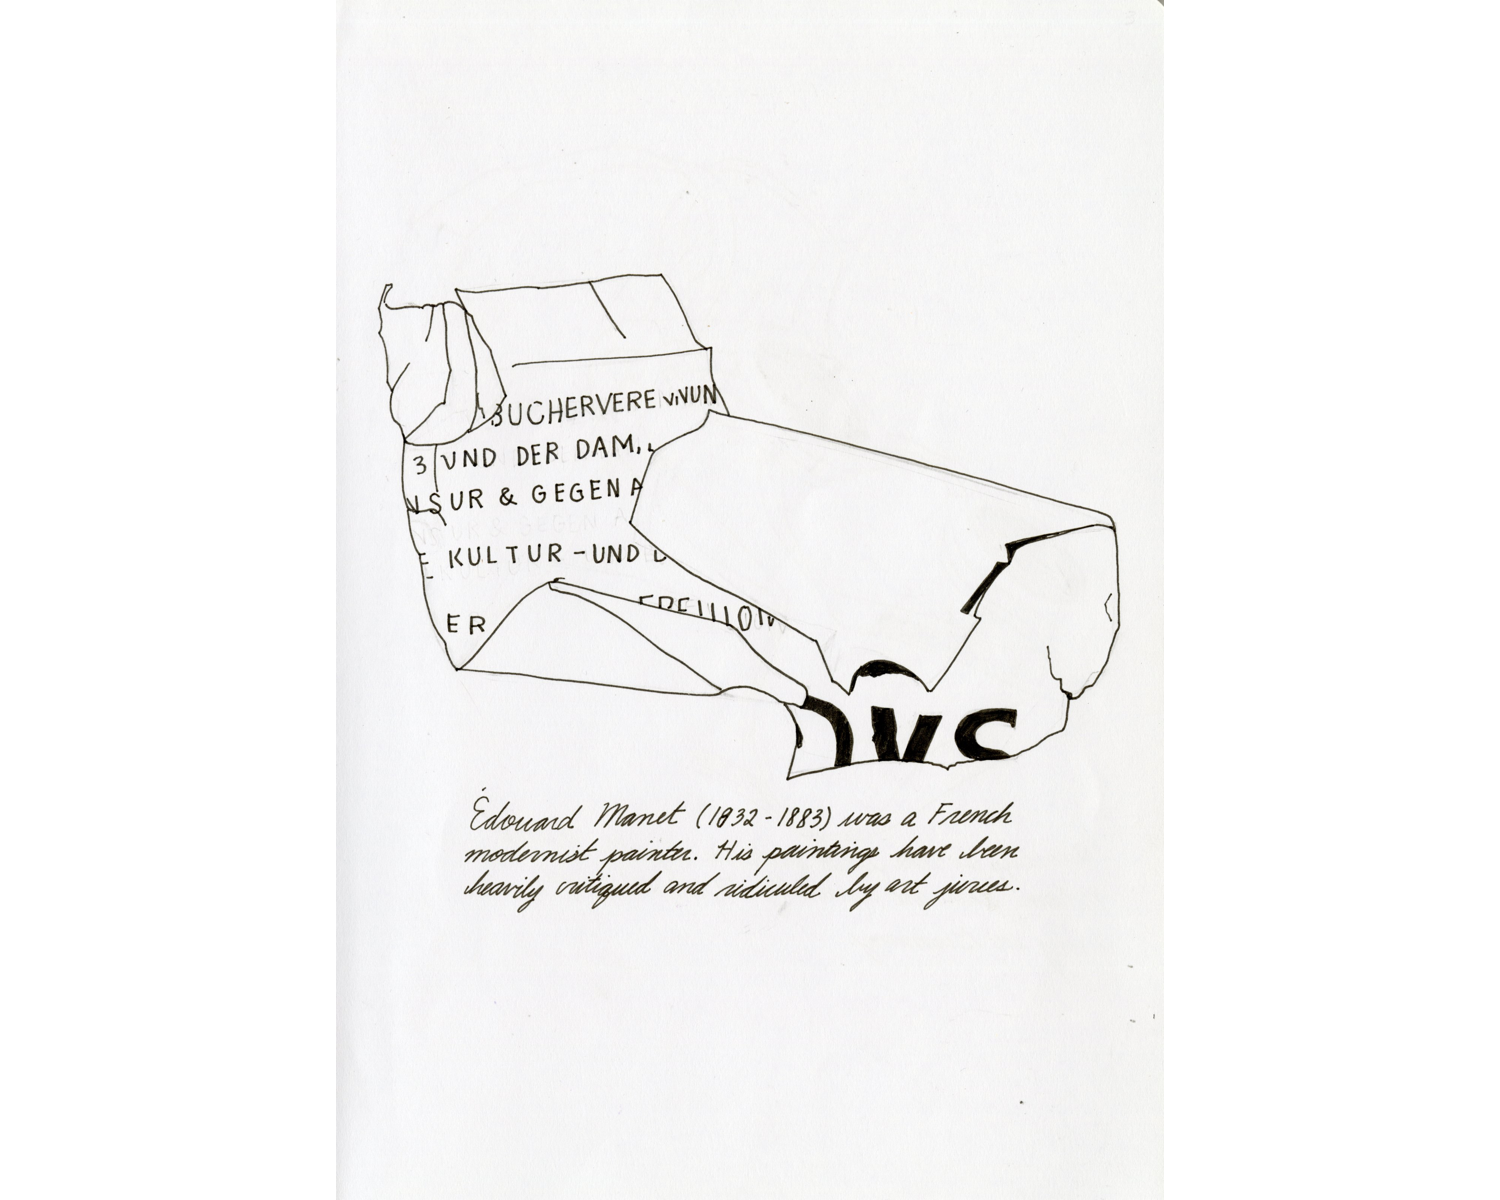 BUCHERVERE
3 UND DER DAM,
NSUR & GEGEN A
KULTUR-UND
ER
Édouard Manet (1832-1883) was a French
modernist painter. His paintings have been
heavily critiqued and ridiculed by art juries.